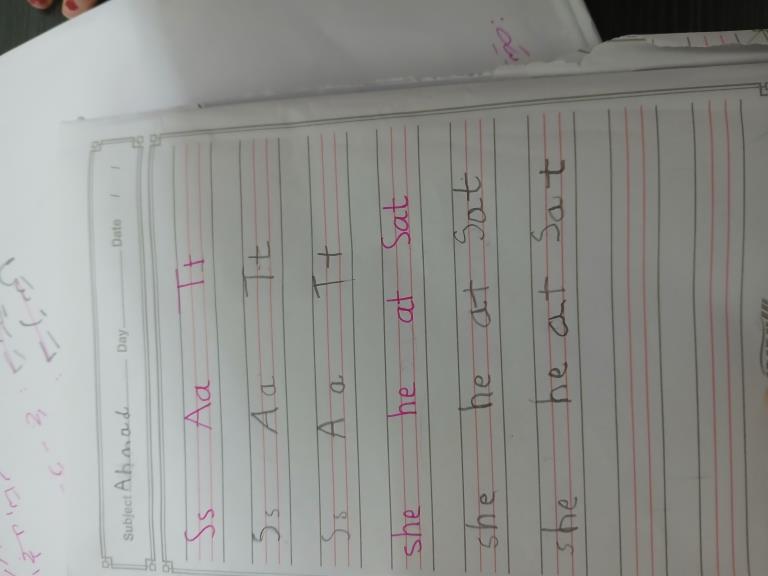 Subject Ahmad Day Date / /
Ss Aa Tt
Ss Aa Tt
Ss Aa Tt
she he at Sat
she he at Sat
she he at Sat